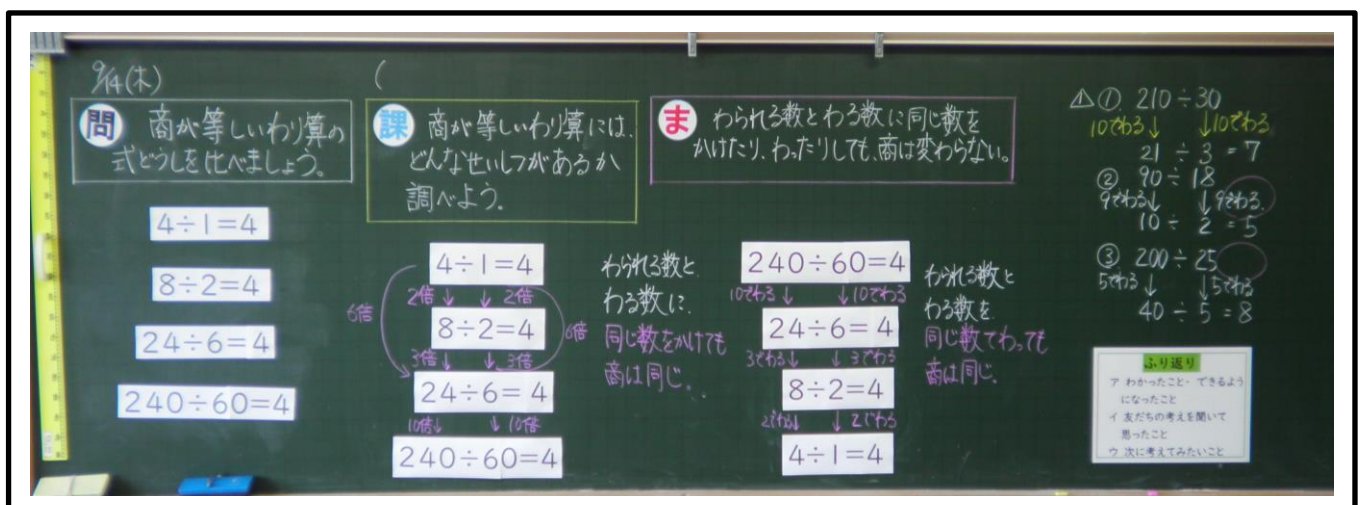 9/14(木)
問 商が等しいわり算の
式どうしを比べましょう。
4÷1=4
8÷2=4
24÷6=4
240÷60=4
課 商が等しいわり算には、
どんなせいしつがあるか
調べよう。
4÷1=4
2倍↓ ↓2倍
8÷2=4
6倍
6倍
3倍↓ ↓3倍
24÷6=4
10倍↓ ↓10倍
240÷60=4
わられる数と
わる数に
同じ数をかけても
商は同じ。
ま わられる数とわる数に同じ数を
かけたり、わったりしても、商は変わらない。
240÷60=4
10でわる↓ ↓10でわる
24÷6=4
3でわる↓ ↓3でわる
8÷2=4
2でわる↓ ↓2でわる
4÷1=4
わられる数と
わる数を
同じ数でわっても
商は同じ。
① 210÷30
10でわる↓ ↓10でわる
21÷3=7
② 90÷18
9でわる↓ ↓9でわる
10÷2=5
③ 200÷25
5でわる↓ ↓5でわる
40÷5=8
ふり返り
ア わかったこと・できるよう
になったこと
イ 友だちの考えを聞いて
思ったこと
ウ 次に考えてみたいこと